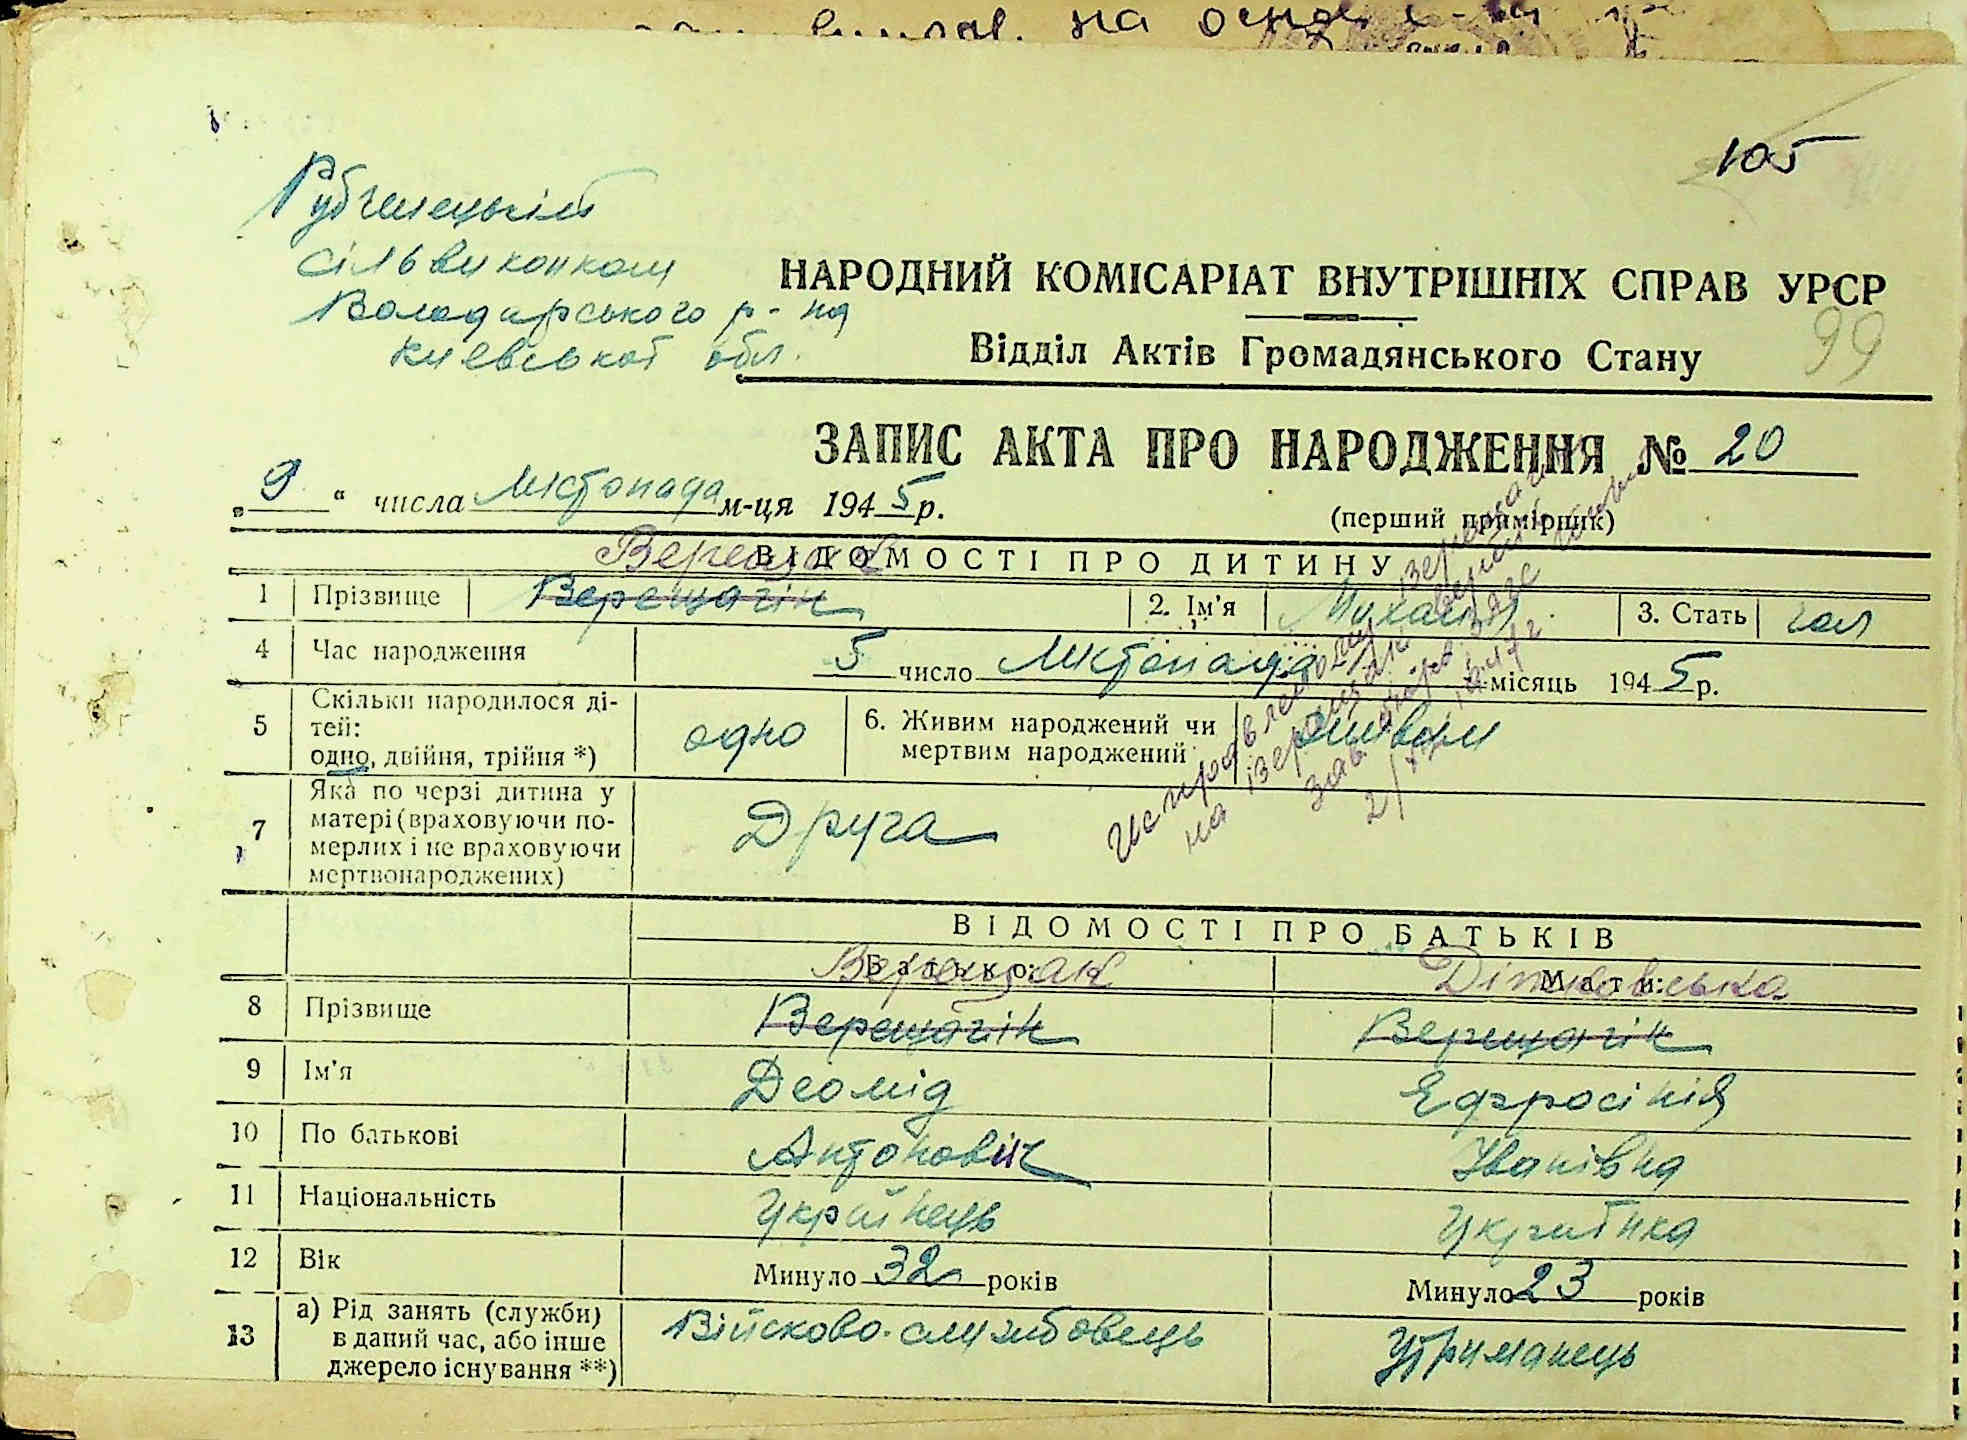 на основ
105
Рубченецький
сільвиконком
Володарського р-на
Київської обл.
НАРОДНИЙ КОМІСАРІАТ ВНУТРІШНІХ СПРАВ УРСР
Відділ Актів Громадянського Стану
99
ЗАПИС АКТА ПРО НАРОДЖЕННЯ № 20
„9“ числа листопада м-ця 1945 р.
(перший примірник)
ВІДОМОСТІ ПРО ДИТИНУ
Верещак
1 Прізвище Верещагін 2. Ім'я Михаил 3. Стать чол
4 Час народження 5 число листопада місяць 1945 р.
5 Скільки народилося ді-
тей:
одно, двійня, трійня *) одно 6. Живим народжений чи
мертвим народжений живим
7 Яка по черзі дитина у
матері (враховуючи по-
мерлих і не враховуючи
мертвонароджених) Друга
Исправлению
на Верещак верить
зав. загс
ВІДОМОСТІ ПРО БАТЬКІВ
Батько: Мати:
Верещак Дітковська
8 Прізвище Верещагін Верещагін
9 Ім'я Деомід Єфросінія
10 По батькові Антонович Іванівна
11 Національність Українець Українка
12 Вік Минуло 32 років Минуло 23 років
13 а) Рід занять (служби)
в даний час, або інше
джерело існування **) Військово-службовець Утриманець